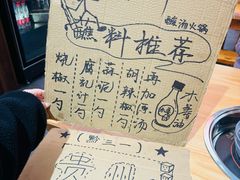 蘸湘火锅
蘸料推荐
烧椒一勺
腐乳汁一勺
蒜泥一勺
胡辣椒一勺
再加原汤
木姜油
(黔三一)
贵州